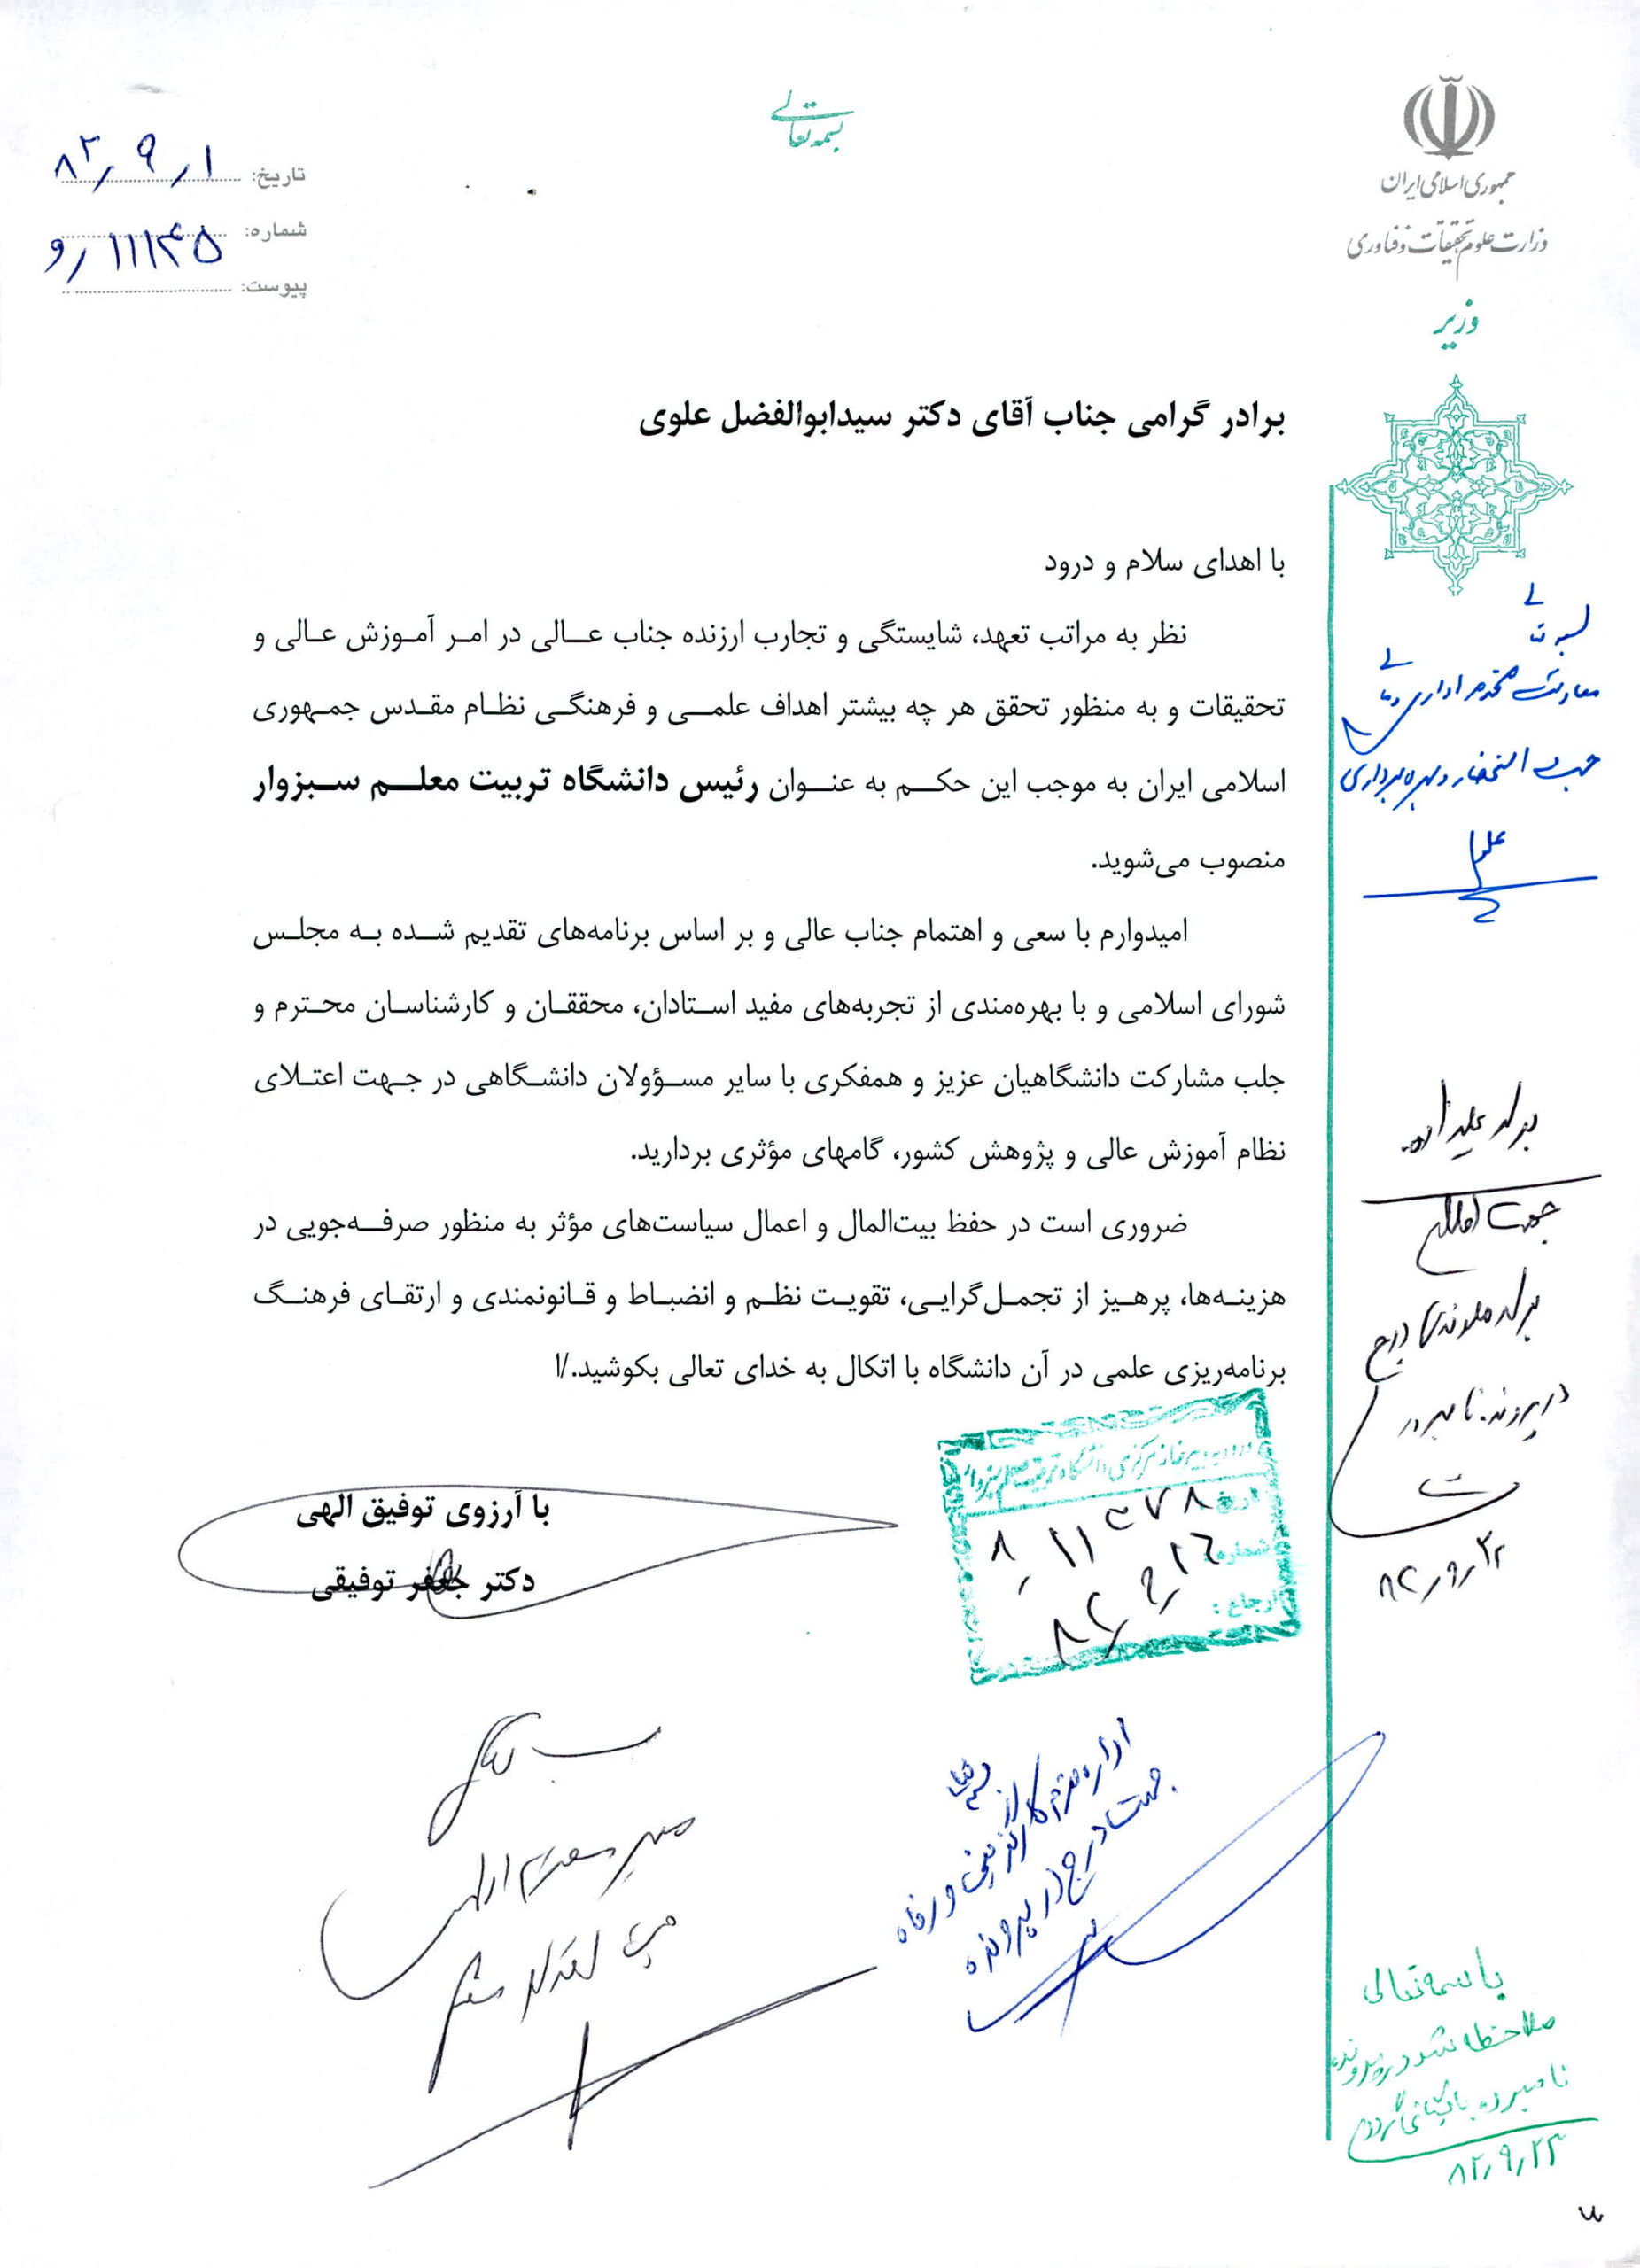 بسمه تعالی
جمهوری اسلامی ایران
وزارت علوم تحقیقات و فناوری
وزیر
تاریخ: ۸۲/۹/۱
شماره: ۱۱۱۴۵/و
پیوست:
برادر گرامی جناب آقای دکتر سیدابوالفضل علوی
با اهدای سلام و درود
نظر به مراتب تعهد، شایستگی و تجارب ارزنده جناب عالی در امر آموزش عالی و
تحقیقات و به منظور تحقق هر چه بیشتر اهداف علمی و فرهنگی نظام مقدس جمهوری
اسلامی ایران به موجب این حکم به عنوان رئیس دانشگاه تربیت معلم سبزوار
منصوب می‌شوید.
امیدوارم با سعی و اهتمام جناب عالی و بر اساس برنامه‌های تقدیم شده به مجلس
شورای اسلامی و با بهره‌مندی از تجربه‌های مفید استادان، محققان و کارشناسان محترم و
جلب مشارکت دانشگاهیان عزیز و همفکری با سایر مسؤولان دانشگاهی در جهت اعتلای
نظام آموزش عالی و پژوهش کشور، گامهای مؤثری بردارید.
ضروری است در حفظ بیت‌المال و اعمال سیاست‌های مؤثر به منظور صرفه‌جویی در
هزینه‌ها، پرهیز از تجمل‌گرایی، تقویت نظم و انضباط و قانونمندی و ارتقای فرهنگ
برنامه‌ریزی علمی در آن دانشگاه با اتکال به خدای تعالی بکوشید./ا
با آرزوی توفیق الهی
دکتر جعفر توفیقی
ورود به دبیرخانه مرکزی دانشگاه تربیت معلم سبزوار
تاریخ
شماره:
۸۲/۹/۱۶
ارجاع:
معاونت محترم اداری و مالی
جهت استحضار و بهره برداری
جهت اطلاع
درج
در پرونده نامبرده
۸۲/۹/۲۲
اداره محترم کارگزینی و رفاه
جهت درج در پرونده
باسمه تعالی
ملاحظه شد در پرونده
نامبرده بایگانی گردد
۸۲/۹/۲۳